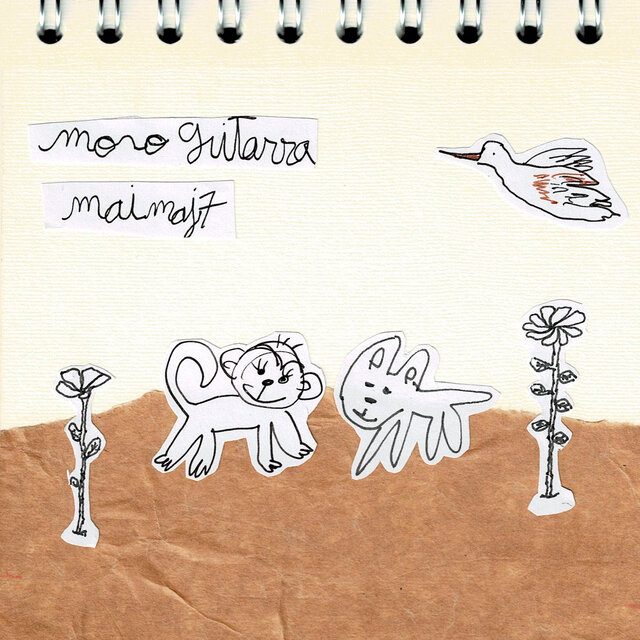 mono guitarra
maimaj7